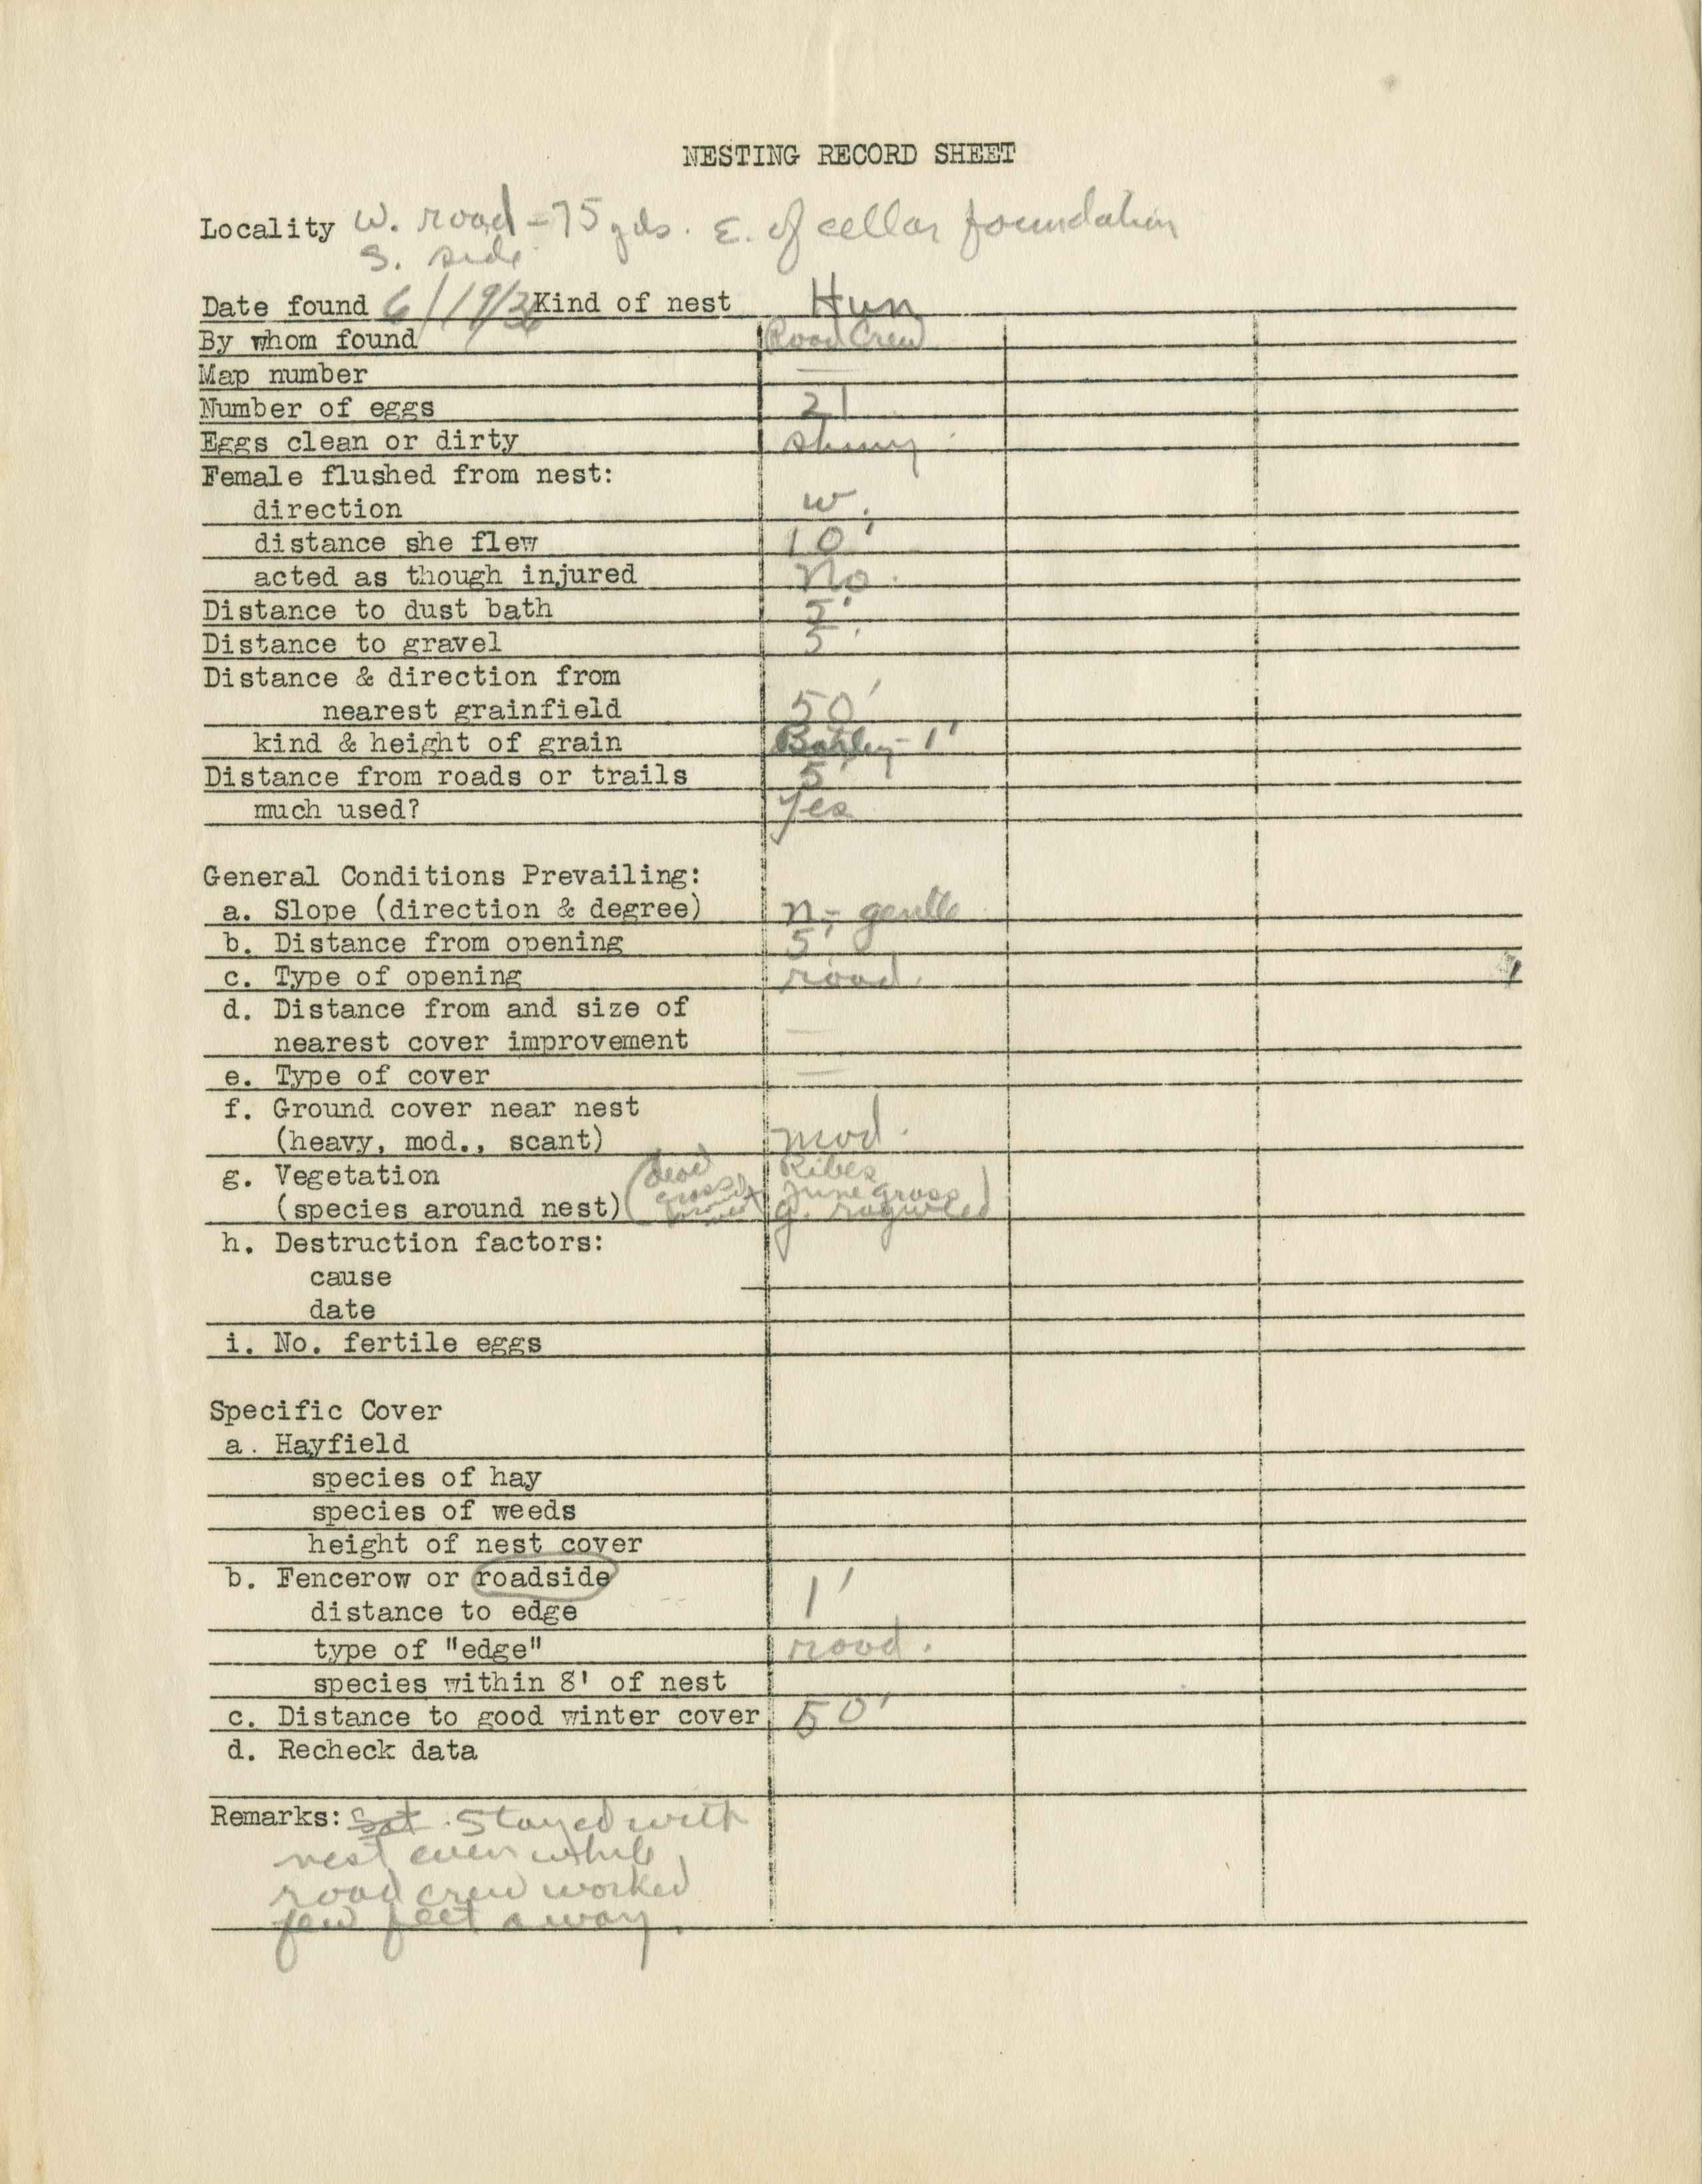 NESTING RECORD SHEET
Locality W. road - 75 yds. E. of cellar foundation
S. side
Date found 6/19/ Kind of nest Hun
By whom found Road Crew
Map number —
Number of eggs 21
Eggs clean or dirty shiny
Female flushed from nest:
direction W.
distance she flew 10'
acted as though injured No.
Distance to dust bath 5'
Distance to gravel 5'
Distance & direction from
nearest grainfield 50'
kind & height of grain Barley - 1'
Distance from roads or trails 5'
much used? Yes
General Conditions Prevailing:
a. Slope (direction & degree) N - gentle
b. Distance from opening 5'
c. Type of opening road.
d. Distance from and size of
nearest cover improvement —
e. Type of cover —
f. Ground cover near nest
(heavy, mod., scant) mod.
g. Vegetation (dead Ribes
(species around nest) grass June grass)
g. ragweed
h. Destruction factors:
cause
date
i. No. fertile eggs
Specific Cover
a. Hayfield
species of hay
species of weeds
height of nest cover
b. Fencerow or roadside
distance to edge 1'
type of "edge" road.
species within 8' of nest
c. Distance to good winter cover 50'
d. Recheck data
Remarks: Sat. Stayed with
nest even while
road crew worked
few feet away.